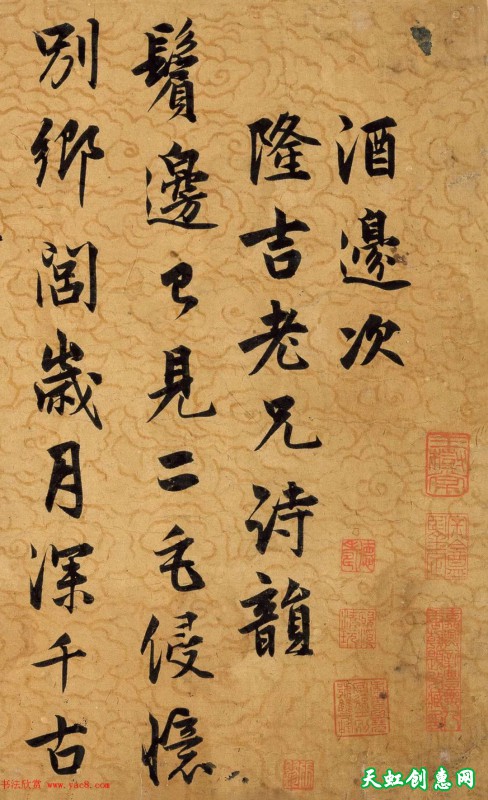 酒邊次
隆吉老兄詩韻
鬢邊已見二毛侵憶
別鄉閭歲月深千古
书法欣赏 www.yac8.com
天虹创惠网